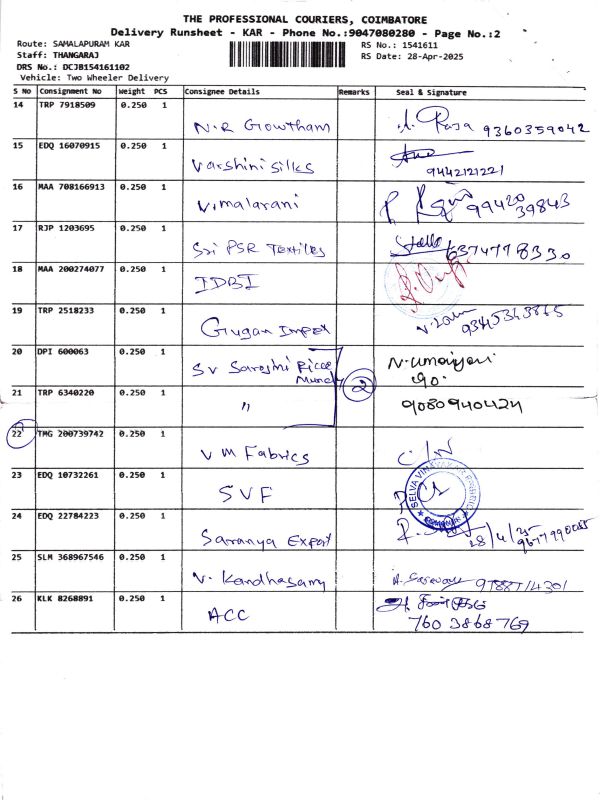 THE PROFESSIONAL COURIERS, COIMBATORE
Delivery Runsheet - KAR - Phone No.:9047080280 - Page No.:2
Route: SAMALAPURAM KAR
Staff: THANGARAJ
DRS No.: DCJB154161102
Vehicle: Two Wheeler Delivery
RS No.: 1541611
RS Date: 28-Apr-2025
S No Consignment No Weight PCS Consignee Details Remarks Seal & Signature
14 TRP 7918509 0.250 1
N.R Gowtham 9360359042
15 EDQ 16070915 0.250 1
Varshini silks 9442121221
16 MAA 708166913 0.250 1
V.malarani 99420
39843
17 RJP 1203695 0.250 1
Sri PSR Textiles 6374778330
18 MAA 200274077 0.250 1
IDBI
19 TRP 2518233 0.250 1
Gugan Impex 9345343865
20 DPI 600063 0.250 1
SV Sareshni Ricce
Mundy 2
21 TRP 6340220 0.250 1
" 9080940424
22 TMG 200739742 0.250 1
V M Fabrics
23 EDQ 10732261 0.250 1
SVF
SELVA VINAYAKAR FABRIC
24 EDQ 22784223 0.250 1
Saranya Export 28/4/25
25 SLM 368967546 0.250 1
V. Kandhasamy
26 KLK 8268891 0.250 1
ACC
760 3868769